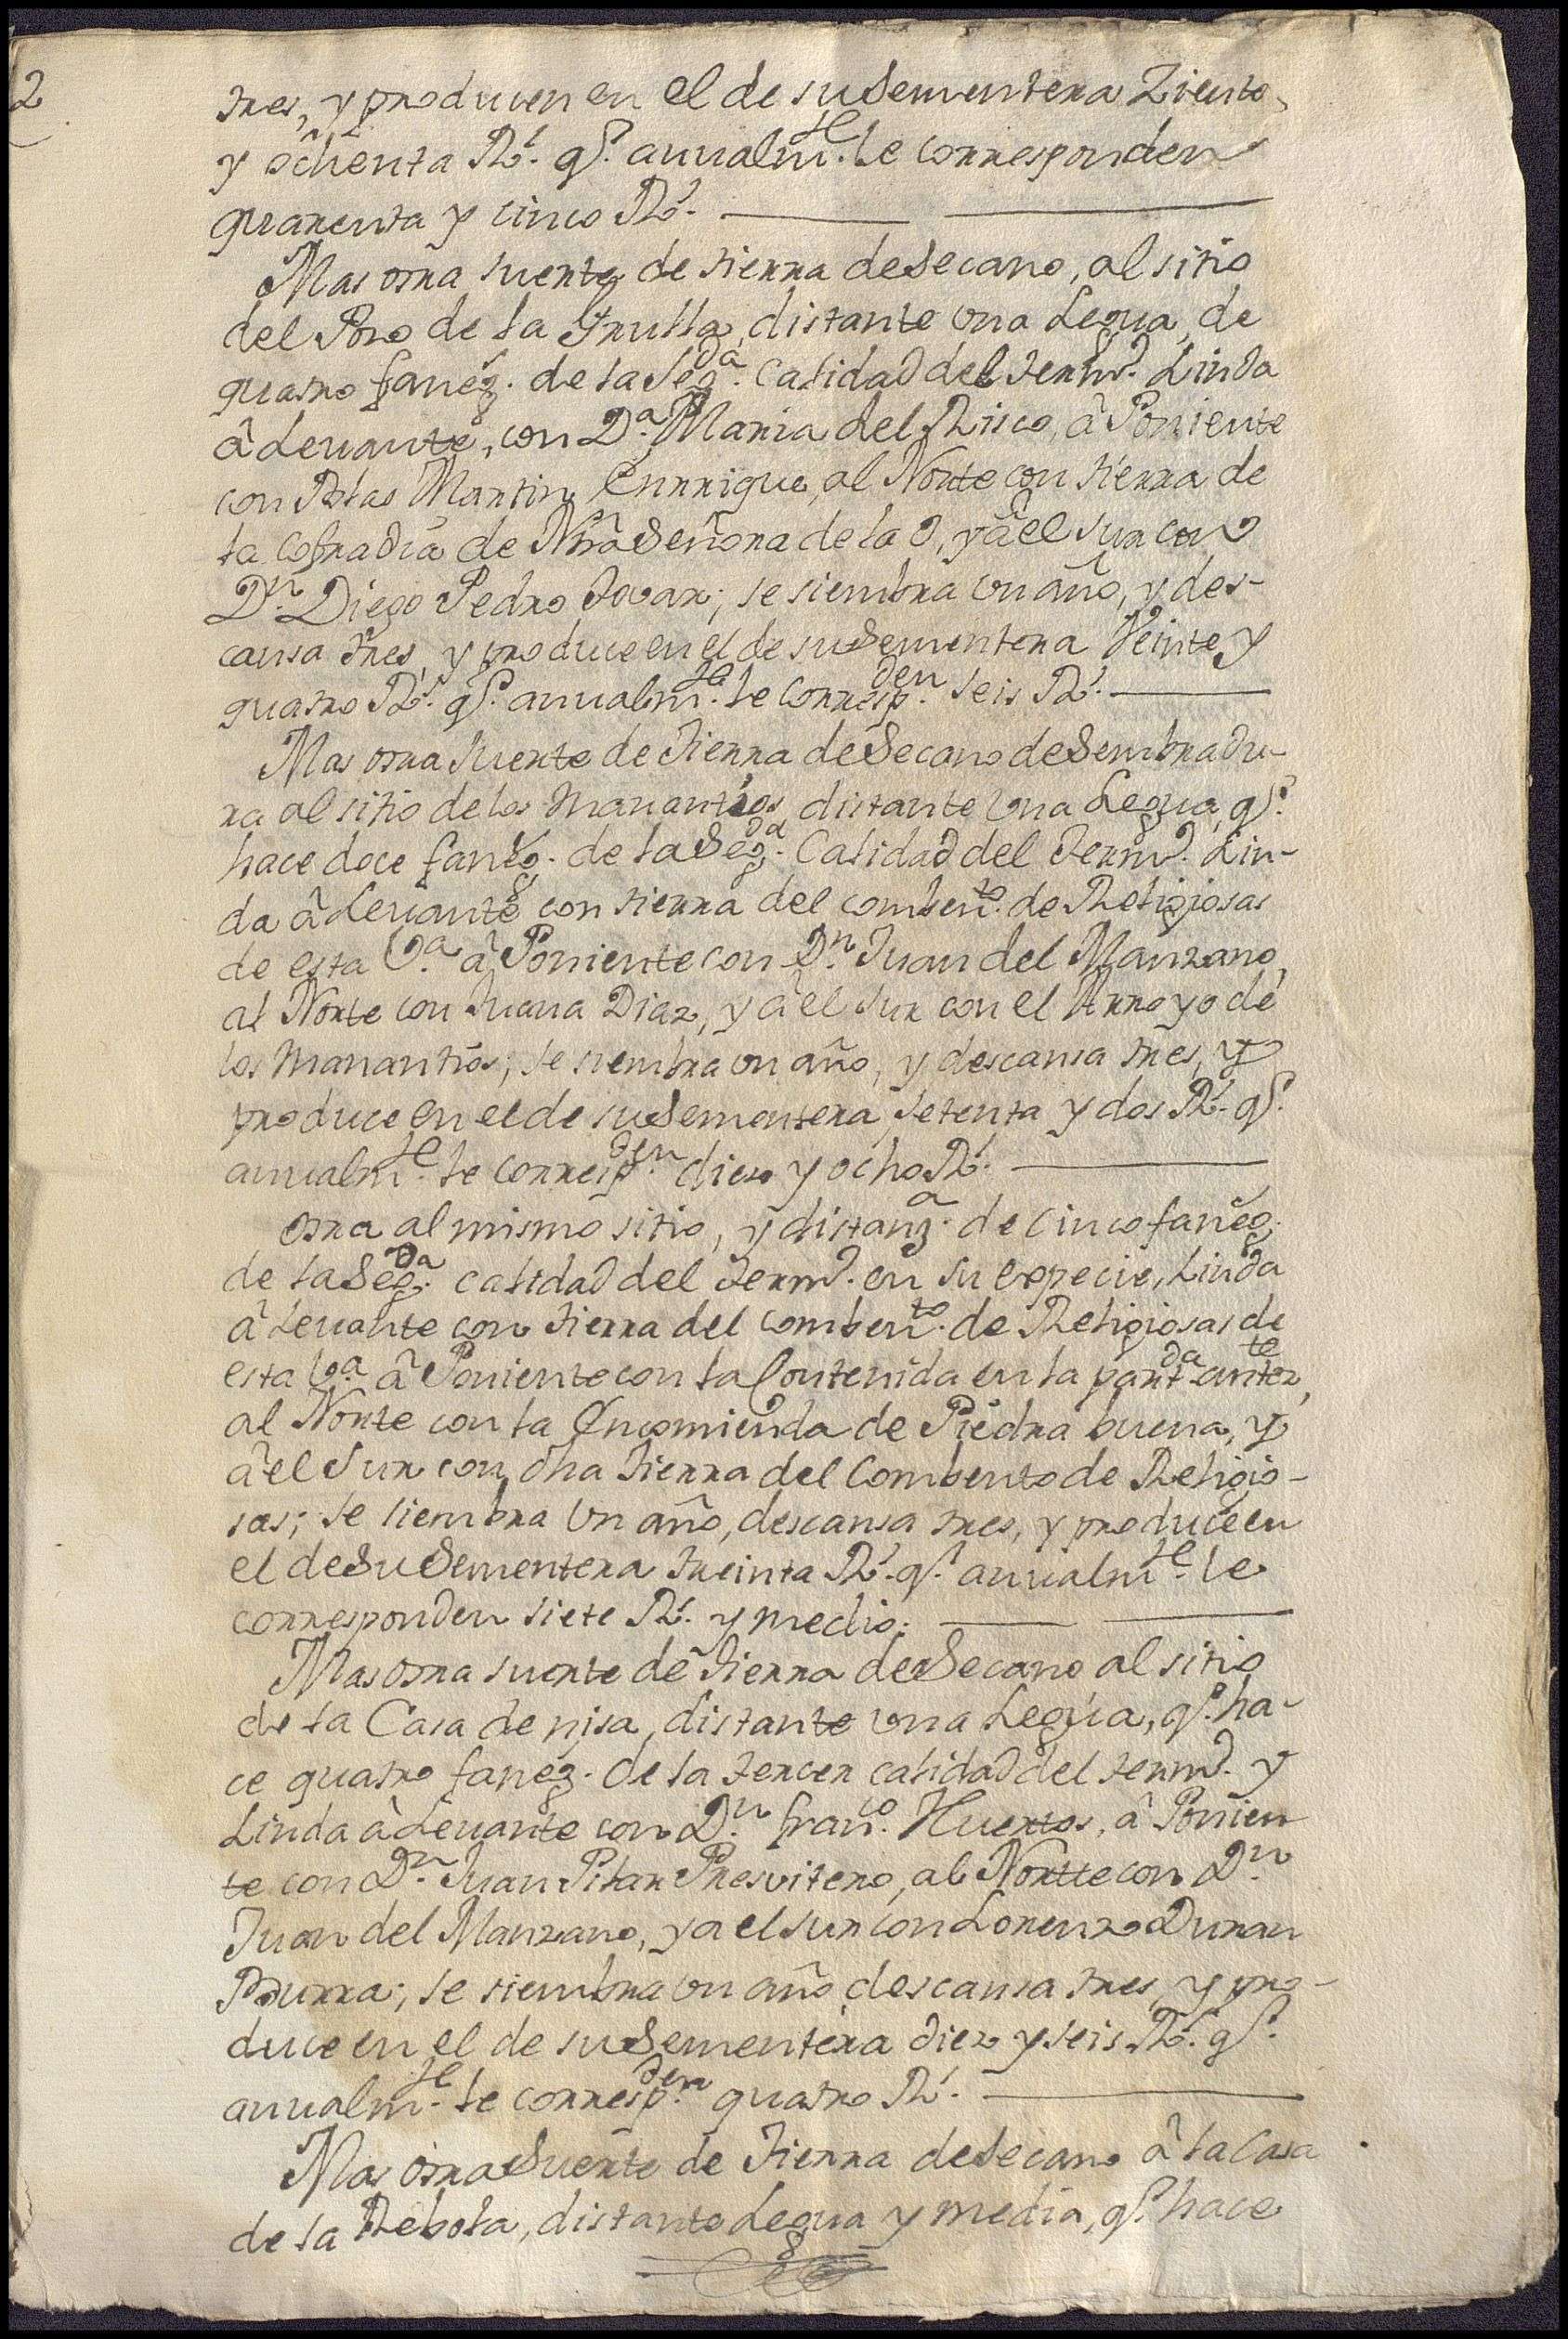 2
tres, y producen en el de su Sementera Ziento,
y ochenta R.s q.e anualm.te le corresponden
quarenta y cinco R.s
Mas otra suerte de tierra de Secano, al sitio
del Pozo de la Grulla, distante una Legua, de
quatro faneg.s de la Seg.da Calidad del term.o Linda
â Levante, con D.a Maria del Risco, â Poniente
con Blas Martin Enrrique, al Norte con tierra de
la Cofradia de Nrâ Señora de la O, y â el sur con
D.n Diego Pedro Tovar; se siembra un año, y des-
cansa tres, y produce en el de su Sementera Veinte y
quatro R.s q.e anualm.te le corresp.den seis R.s
Mas otra suerte de tierra de Secano de Sembradu-
ra al sitio de los Manantios, distante Una Legua, q.e
hace doce faneg.s de la Seg.da Calidad del Term.o Lin-
da â Levante con tierra del comben.to de Religiosas
de esta V.a â Poniente con D.n Juan del Manzano,
al Norte con Juana Diaz, y â el sur con el Arroyo de
los Manantios; se siembra un año, y descansa tres, y
produce en el de su Sementera, Setenta y dos R.s q.e
anualm.te le corresp.den diez y ocho R.s
otra al mismo sitio, y distanz.a de cinco faneg.
de la Seg.da calidad del term.o en su especie, Linda
â Levante con tierra del comben.to de Religiosas de
esta V.a â Poniente con la Contenida en la part.da antez.te,
al Norte con la Encomienda de Piedra buena, y
â el Sur con dha tierra del Combento de Religio-
sas; se siembra Un año, descansa tres, y produce en
el de su Sementera treinta R.s q.e anualm.te le
corresponden siete R.s y medio.
Mas otra suerte de tierra de Secano al sitio
de la Casa de nisa, distante una Legua, q.e ha-
ce quatro faneg. de la tercer calidad del term.o y
Linda â Levante con D.n Fran.co Huertos, â Ponien
te con D.n Juan Pilar Presvitero, al Nortte con D.n
Juan del Manzano, y a el sur con Lorenzo Duran
Burra; se siembra un año descansa tres, y pro-
duce en el de su Sementera diez y seis R.s q.e
anualm.te le corresp.den quatro R.s
Mas otra Suerte de Tierra de Secano â la Casa
de la Rebola, distante Legua y media, q.e hace